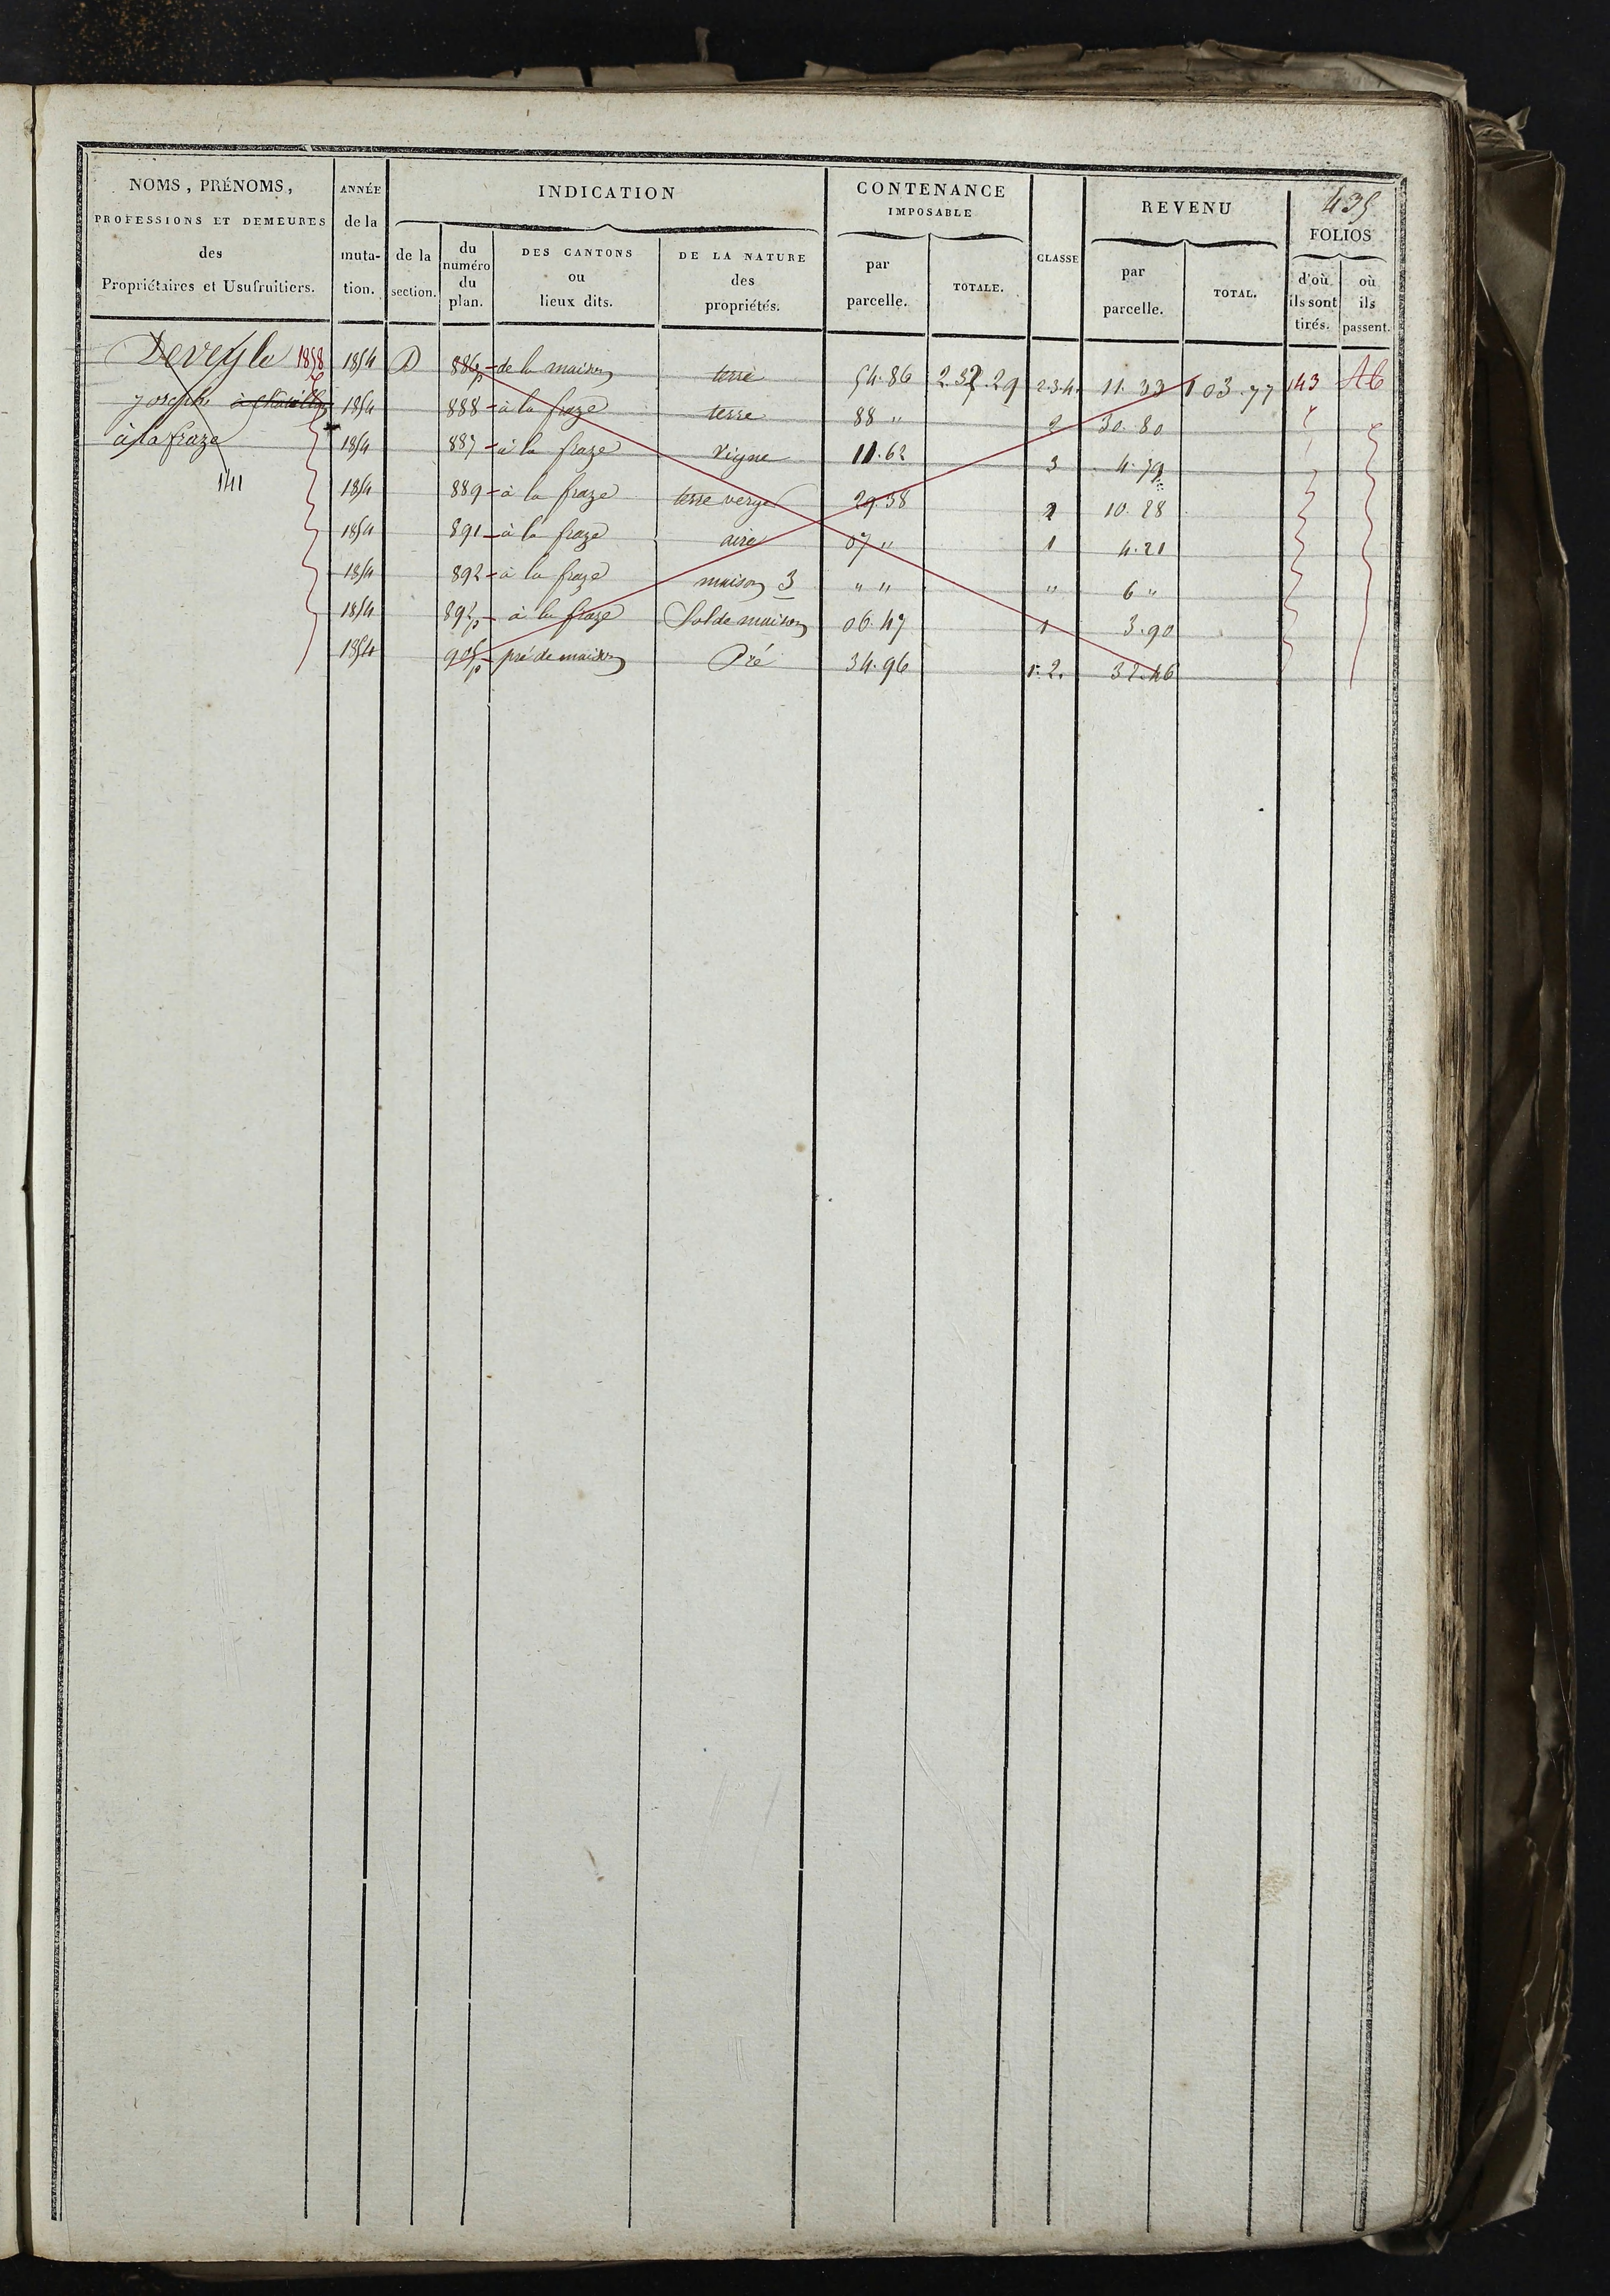 435
NOMS, PRÉNOMS, PROFESSIONS ET DEMEURES des Propriétaires et Usufruitiers.
ANNÉE de la muta-tion.
INDICATION
de la section.
du numéro du plan.
DES CANTONS ou lieux dits.
DE LA NATURE des propriétés.
CONTENANCE IMPOSABLE
par parcelle.
TOTALE.
CLASSE
REVENU
par parcelle.
TOTAL.
FOLIOS
d'où ils sont tirés.
où ils passent.
Deveyle 1858 1854 D 886p de la maison terre 54.86 2.32.29 2.3.4. 11.33 103.77 143 46
joseph à Chatillon 1854 888 à la fraze terre 88 " 2 30.80
à la fraze 1854 887 à la fraze vigne 11.62 3 4.79
141 1854 889 à la fraze terre verger 29.38 2 10.28
1854 891 à la fraze aire 07 " 1 4.21
1854 892 à la fraze maison 3 " " " 6 "
1854 892p à la fraze Sol de maison 06.47 1 3.90
1854 905p pré de maison Pré 34.96 1.2. 32.46